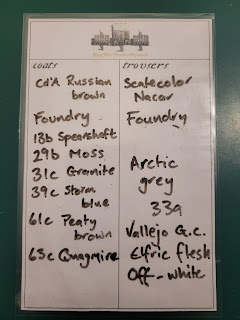 coats
trousers
Cd'A Russian
brown
Foundry
13b Spearshaft
29b Moss
31c Granite
39c Storm
blue
61c Peaty
brown
65c Quagmire
Scalecolor
Nacar
Foundry
Arctic
grey
33a
Vallejo G.C.
Elfric flesh
Off-white